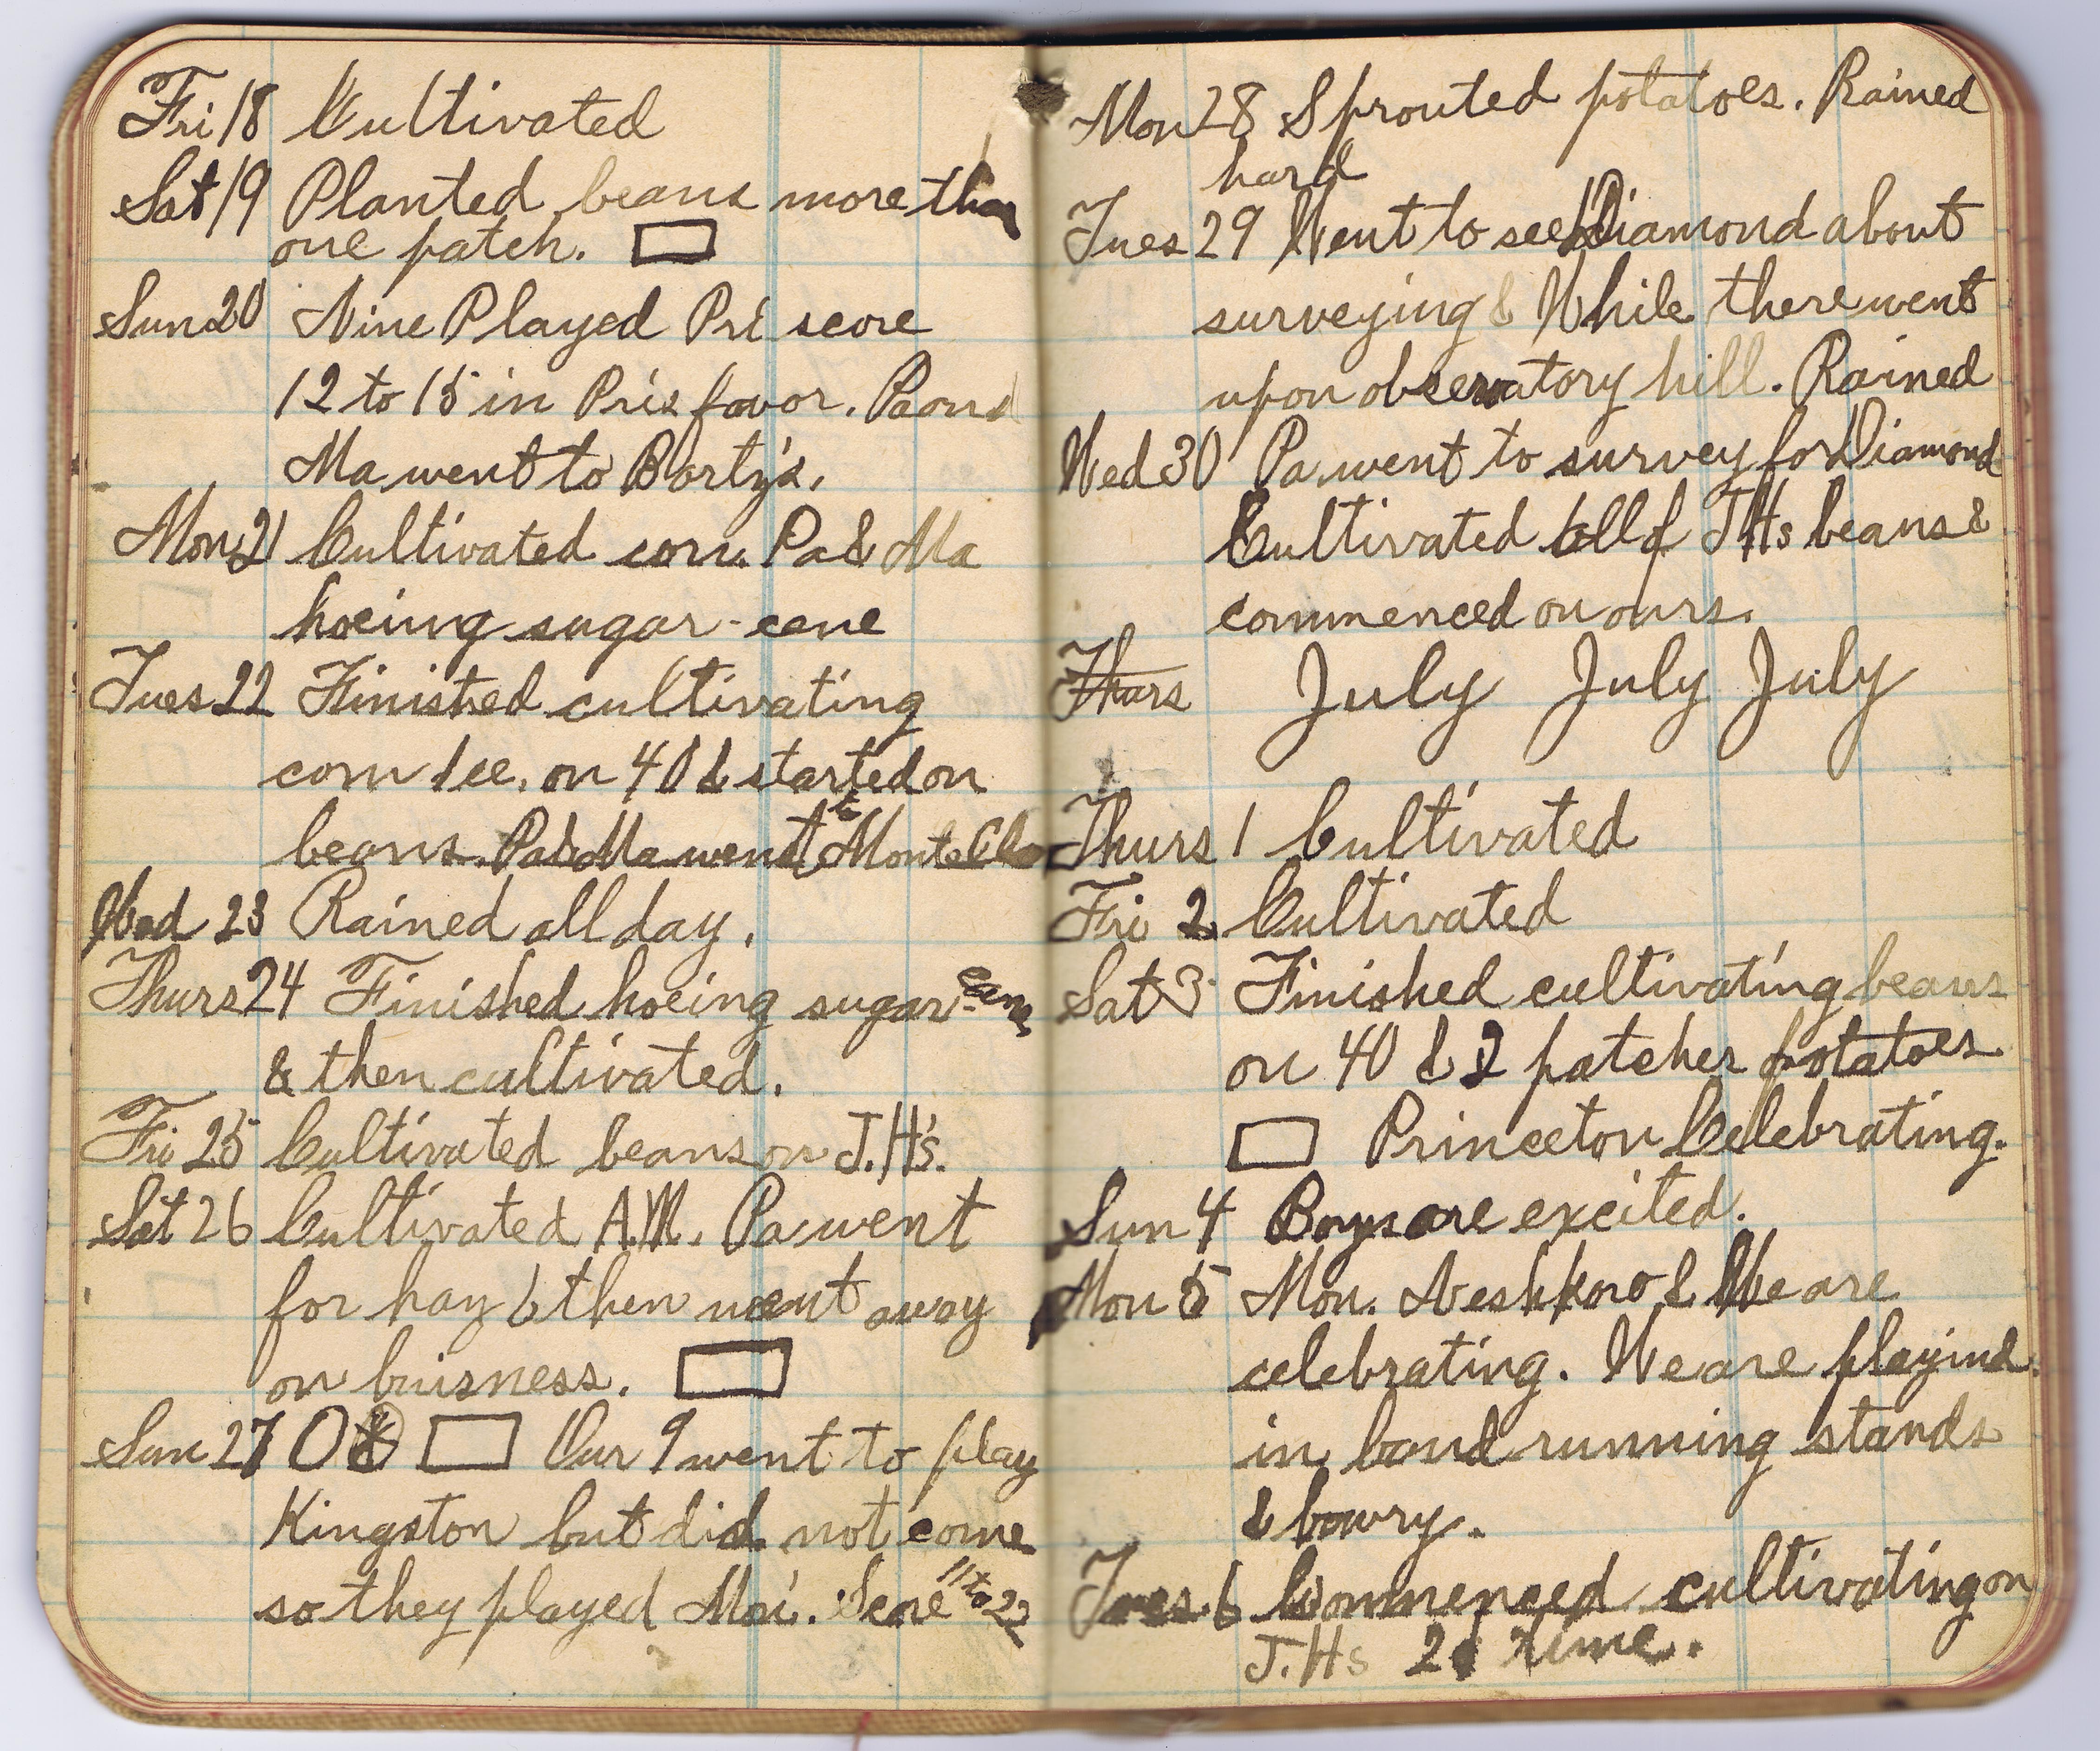 Fri 18 Cultivated
Sat 19 Planted beans more than
one patch.
Sun 20 Nine Played Pri score
12 to 15 in Pris favor. Pa and
Ma went to Barty's.
Mon 21 Cultivated corn. Pa & Ma
hoeing sugar-cane
Tues 22 Finished cultivating
corn on 40 & started on
beans. Pa & Ma went to Montello
Wed 23 Rained all day.
Thurs 24 Finished hoeing sugar-cane
& then cultivated.
Fri 25 Cultivated beans on J.H's.
Sat 26 Cultivated A.M. Pa went
for hay & then went away
on buisness.
Sun 27 Our 9 went to play
Kingston but did not come
so they played Mon. Score 11 to 22
Mon 28 Sprouted potatoes. Rained
hard
Tues 29 Went to see Diamond about
surveying & While there went
up on observatory hill. Rained
Wed 30 Pa went to survey for Diamond
Cultivated all of JHs beans &
commenced on ours.
Thurs July July July
Thurs 1 Cultivated
Fri 2 Cultivated
Sat 3 Finished cultivating beans
on 40 & 2 patches potatoes
Princeton Celebrating.
Sun 4 Boys are excited.
Mon 5 Mon. Neshkoro & We are
celebrating. We are playind
in band running stands
& bowry.
Tues. 6 Commenced cultivating on
J.Hs 2d time.